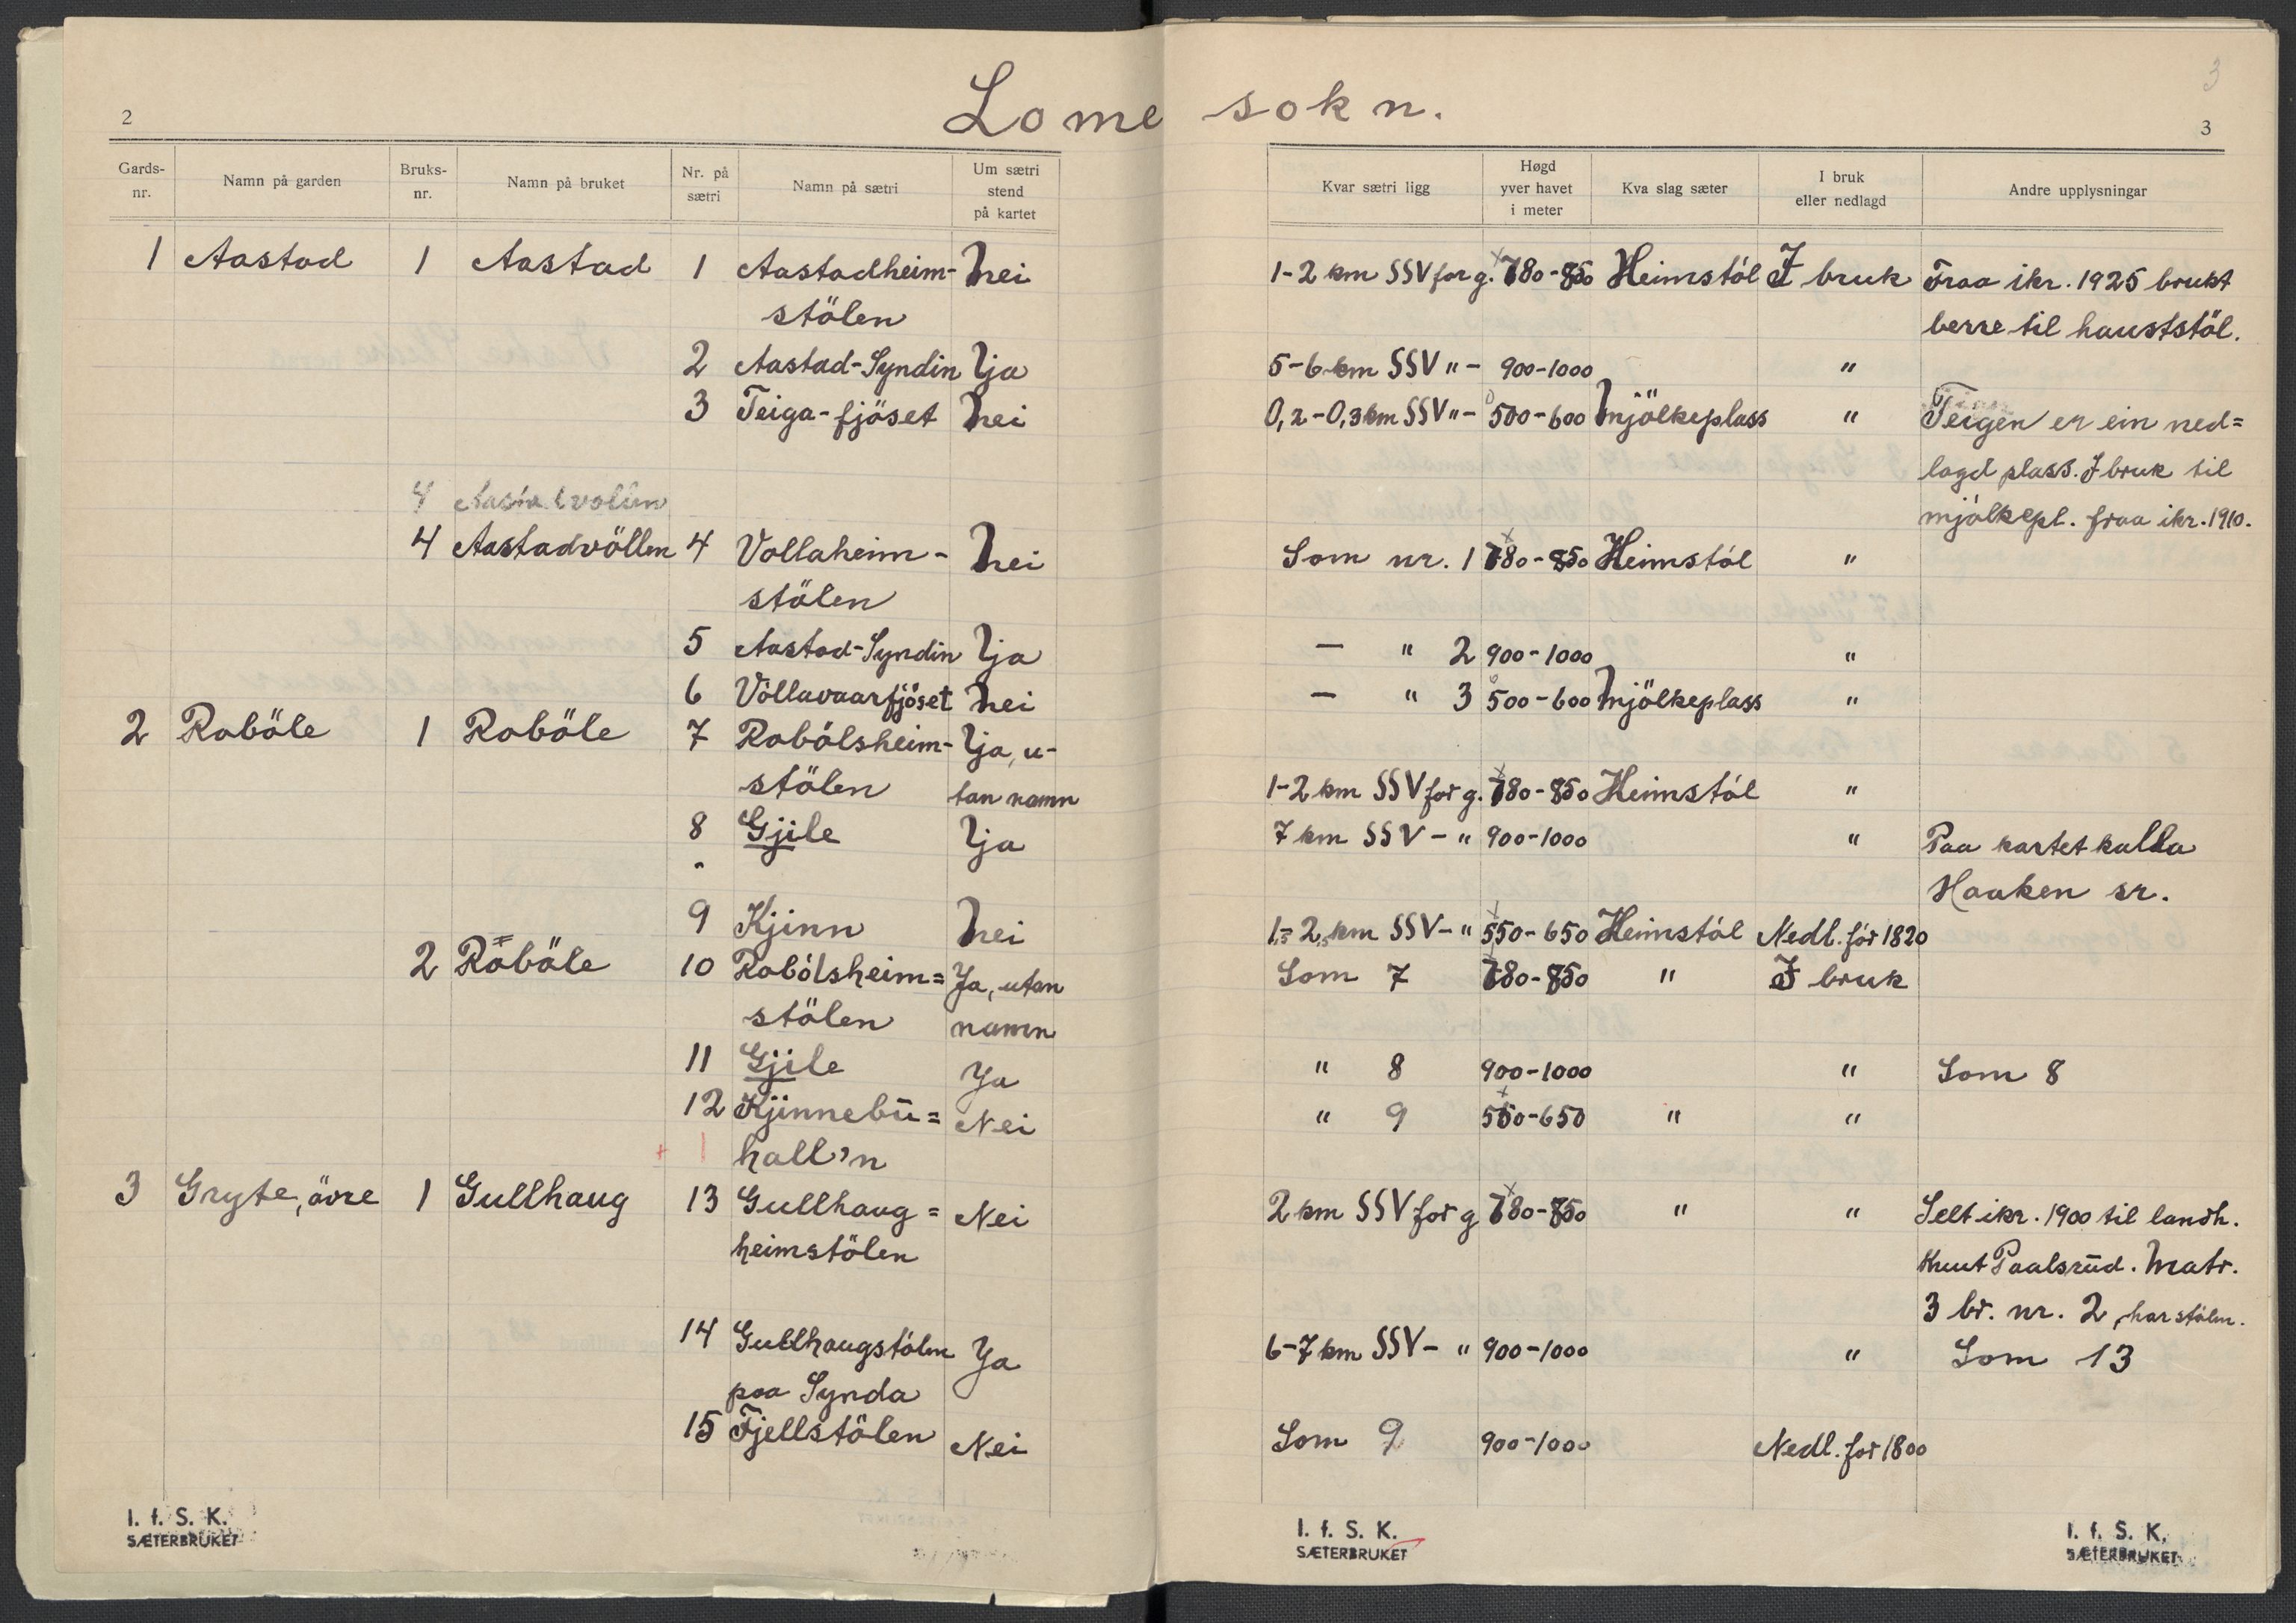 Lome sokn.
2
3
3
Gards-nr. Namn på garden Bruks-nr. Namn på bruket Nr. på sætri Namn på sætri Um sætri stend på kartet Kvar sætri ligg Høgd yver havet i meter Kva slag sæter I bruk eller nedlagd Andre upplysningar
1 Aastad 1 Aastad 1 Aastadheim- Nei 1-2 km SSV for g. 780-850 Heimstöl I bruk Fraa ikr. 1925 brukt
stölen berre til hauststöl.
2 Aastad-Syndin Ja 5-6 km SSV "- 900-1000 "
3 Teiga-fjöset Nei 0,2-0,3 km SSV "- 500-600 Mjölkeplass " Teigen er ein ned=
lagd plass. I bruk til
4 Aastadvollen mjölkepl. fraa ikr. 1910.
4 Aastadvöllen 4 Vollaheim- Nei Som nr. 1 780-850 Heimstöl "
stölen
5 Aastad-Syndin Ja — " 2 900-1000 "
6 Völlavaarfjöset Nei — " 3 500-600 Mjölkeplass "
2 Roböle 1 Roböle 7 Robölsheim- Ja, u-
stölen tan namn 1-2 km SSV for g. 780-850 Heimstöl "
8 Gjile Ja 7 km SSV - " 900-1000 " Paa kartet kalla
Haaken sr.
9 Kjinn Nei 1,5-2,5 km SSV - " 550-650 Heimstöl Nedl. för 1820
2 Roböle 10 Robölsheim= Ja, utan Som 7 780-850 " I bruk
stölen namn
11 Gjile Ja " 8 900-1000 " Som 8
12 Kjinnebū= Nei " 9 550-650 " "
hall'n
3 Gryte, övre 1 Gullhaug 13 Gullhaug= Nei 2 km SSV for g 780-850 " " Selt ikr. 1900 til landh.
heimstölen Knut Paalsrud. Matr.
3 br. nr. 2, har stölen.
14 Gullhaugstölen Ja 6-7 km SSV - " 900-1000 " Som 13
paa Synda
15 Fjellstölen Nei Som 9 900-1000 Nedl. for 1800
I. f. S. K.
SÆTERBRUKET
I. f. S. K.
SÆTERBRUKET
I. f. S. K.
SÆTERBRUKET